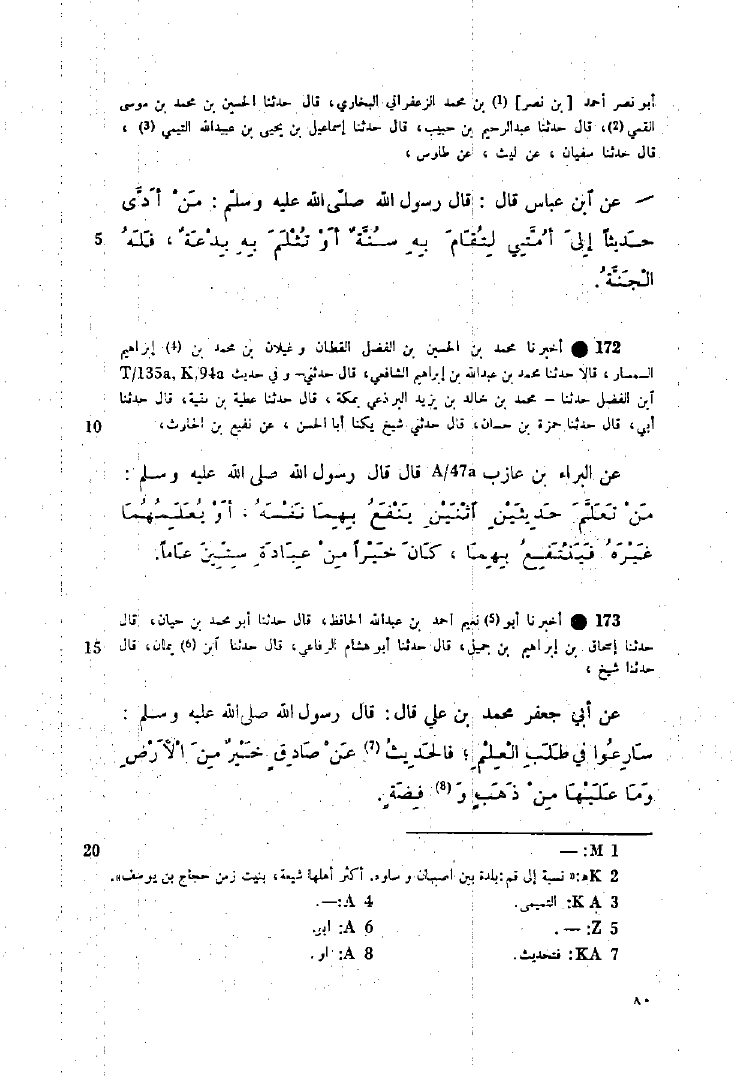 أبو نصر أحمد [بن نصر] (1) بن محمد الزعفراني البخاري، قال حدثنا الحسين بن محمد بن موسى
القمي (2)، قال حدثنا عبدالرحيم بن حبيب، قال حدثنا إسماعيل بن يحيى بن عبيدالله التيمي (3) ،
قال حدثنا سفيان ، عن ليث ، عن طاوس ،
— عن ابن عباس قال : قال رسول الله صلّى الله عليه وسلّم : مَنْ أَدَّى
5 حَدِيثاً إِلىَ أُمَّتِي لِتُقَامَ بِهِ سُنَّةٌ أَوْ تُثْلَمَ بِهِ بِدْعَةٌ ، فَلَهُ
الْجَنَّةُ.
172 ● أخبرنا محمد بن الحسين بن الفضل القطان وغيلان بن محمد بن (4) إبراهيم
السمسار ، قالا حدثنا محمد بن عبدالله بن إبراهيم الشافعي، قال حدثني– و في حديث T/135a, K,94a
ابن الفضل حدثنا – محمد بن خالد بن يزيد البرذعي بمكة ، قال حدثنا عطية بن بقية، قال حدثنا
10 أبي، قال حدثنا حمزة بن حسان، قال حدثني شيخ يكنا أبا الحسن ، عن نفيع بن الحارث،
عن البراء بن عازب A/47a قال قال رسول الله صلى الله عليه وسلم :
مَنْ تَعَلَّمَ حَدِيثَيْنِ اثْنَيْنِ يَنْفَعُ بِهِمَا نَفْسَهُ ، أَوْ يُعَلِّمُهُمَا
غَيْرَهُ فَيَنْتَفِعُ بِهِمَا ، كَانَ خَيْراً مِنْ عِبَادَةِ سِتِّينَ عَاماً.
173 ● أخبرنا أبو (5) نعيم احمد بن عبدالله الحافظ، قال حدثنا أبو محمد بن حيان، قال
15 حدثنا إسحاق بن إبراهيم بن جميل، قال حدثنا أبو هشام الرفاعي، قال حدثنا ابن (6) يمان، قال
حدثنا شيخ ،
عن أبي جعفر محمد بن علي قال: قال رسول الله صلى الله عليه وسلم :
سَارِعُوا فِي طَلَبِ الْعِلْمِ ؛ فالحَدِيثُ (7) عَنْ صَادِقٍ خَيْرٌ مِنَ الْأَرْضِ
وَمَا عَلَيْهَا مِنْ ذَهَبٍ وَ (8) فِضَّةٍ.
20 1 M: —
2 K«: نسبة إلى قم: بلدة بين أصبهان و ساوه. أكثر أهلها شيعة، بنيت زمن حجاج بن يوسف».
3 K A: التميمى. 4 A: —.
5 Z: —. 6 A: ابو.
7 KA: فتحديث. 8 A: او.
٨٠